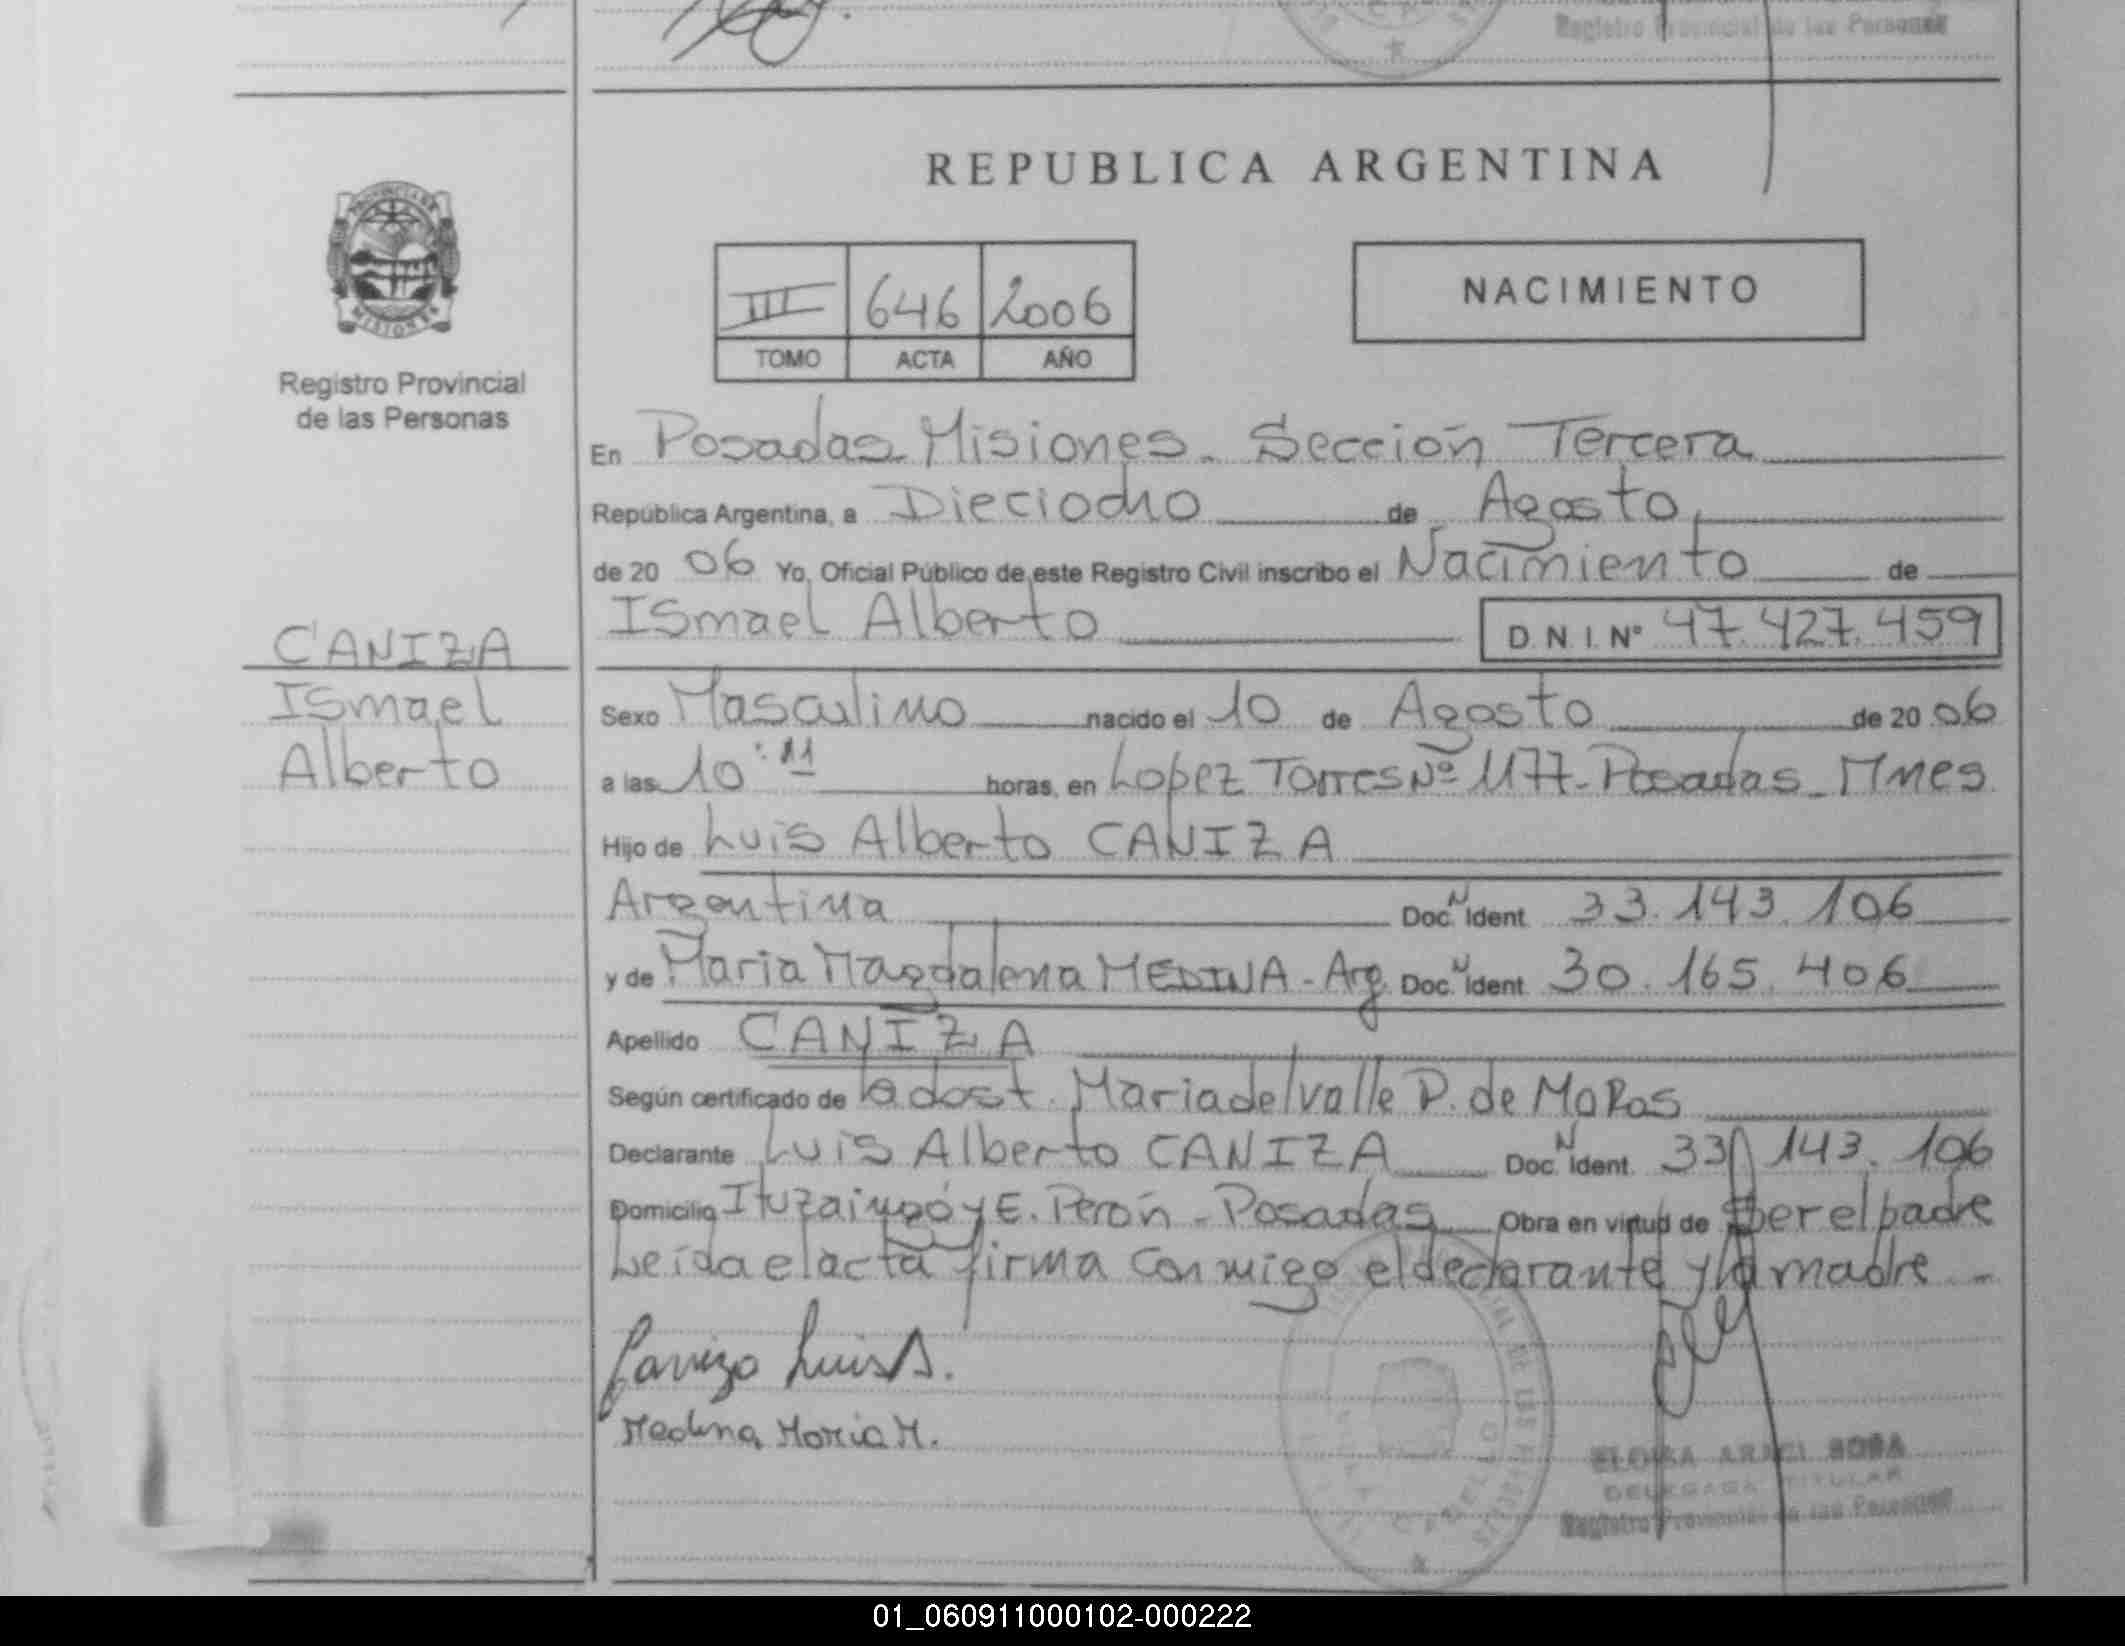 Registro Provincial de las Personas
REPUBLICA ARGENTINA
PROVINCIA DE
MISIONES
Registro Provincial
de las Personas
III 646 2006
TOMO ACTA AÑO
NACIMIENTO
En Posadas Misiones. Sección Tercera
República Argentina, a Dieciocho de Agosto
de 20 06 Yo, Oficial Público de este Registro Civil inscribo el Nacimiento de
Ismael Alberto D.N.I. Nº 47.427.459
CANIZA
Ismael
Alberto
Sexo Masculino nacido el 10 de Agosto de 20 06
a las 10:11 horas, en Lopez Torres Nº 1177-Posadas-Mnes
Hijo de Luis Alberto CANIZA
Argentina Doc. N Ident. 33.143.106
y de Maria Magdalena MEDINA - Arg. Doc. N Ident. 30.165.406
Apellido CANIZA
Según certificado de la obst. Maria del valle P. de MoRas
Declarante Luis Alberto CANIZA Doc. N Ident. 33.143.106
Domicilio Ituzaingó y E. Perón - Posadas Obra en virtud de Ser el padre
Leída el acta firma conmigo el declarante y la madre -
Caniza Luis A.
Medina Maria M.
ELOISA ARACI SOSA
DELEGADA TITULAR
Registro Provincial de las Personas
01_060911000102-000222